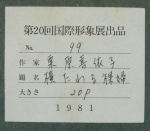 第20回国際形象展出品
No. 99
作家
題名 横たわる裸婦
大きさ 20P
1981